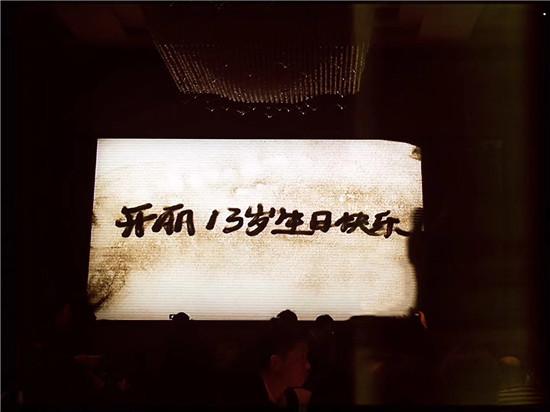 开丽13岁生日快乐